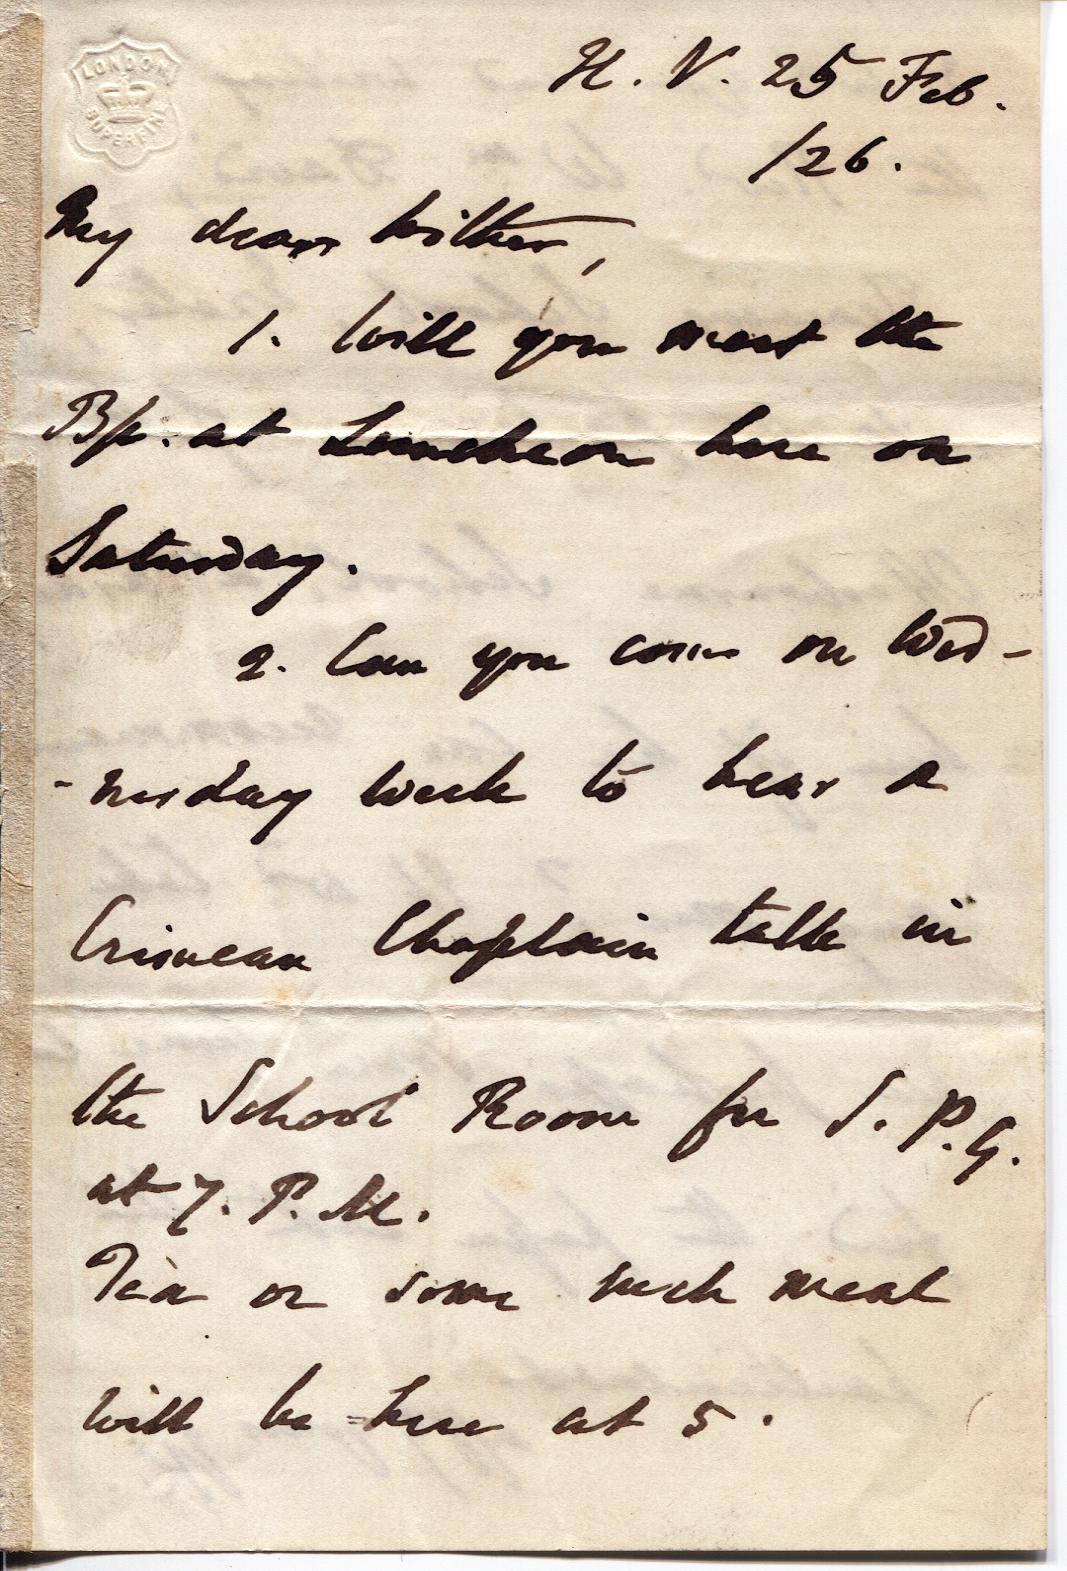 LONDON
SUPERFINE
H. V. 25 Feb.
/26.
My dear Wither,
1. Will you meet the
Bp. at Luncheon here on
Saturday.
2. Can you come on Wed-
-nesday week to hear a
Crimean Chaplain talk in
the School Room for S. P. G.
at 7. P. M.
Tea or some such meal
will be here at 5.